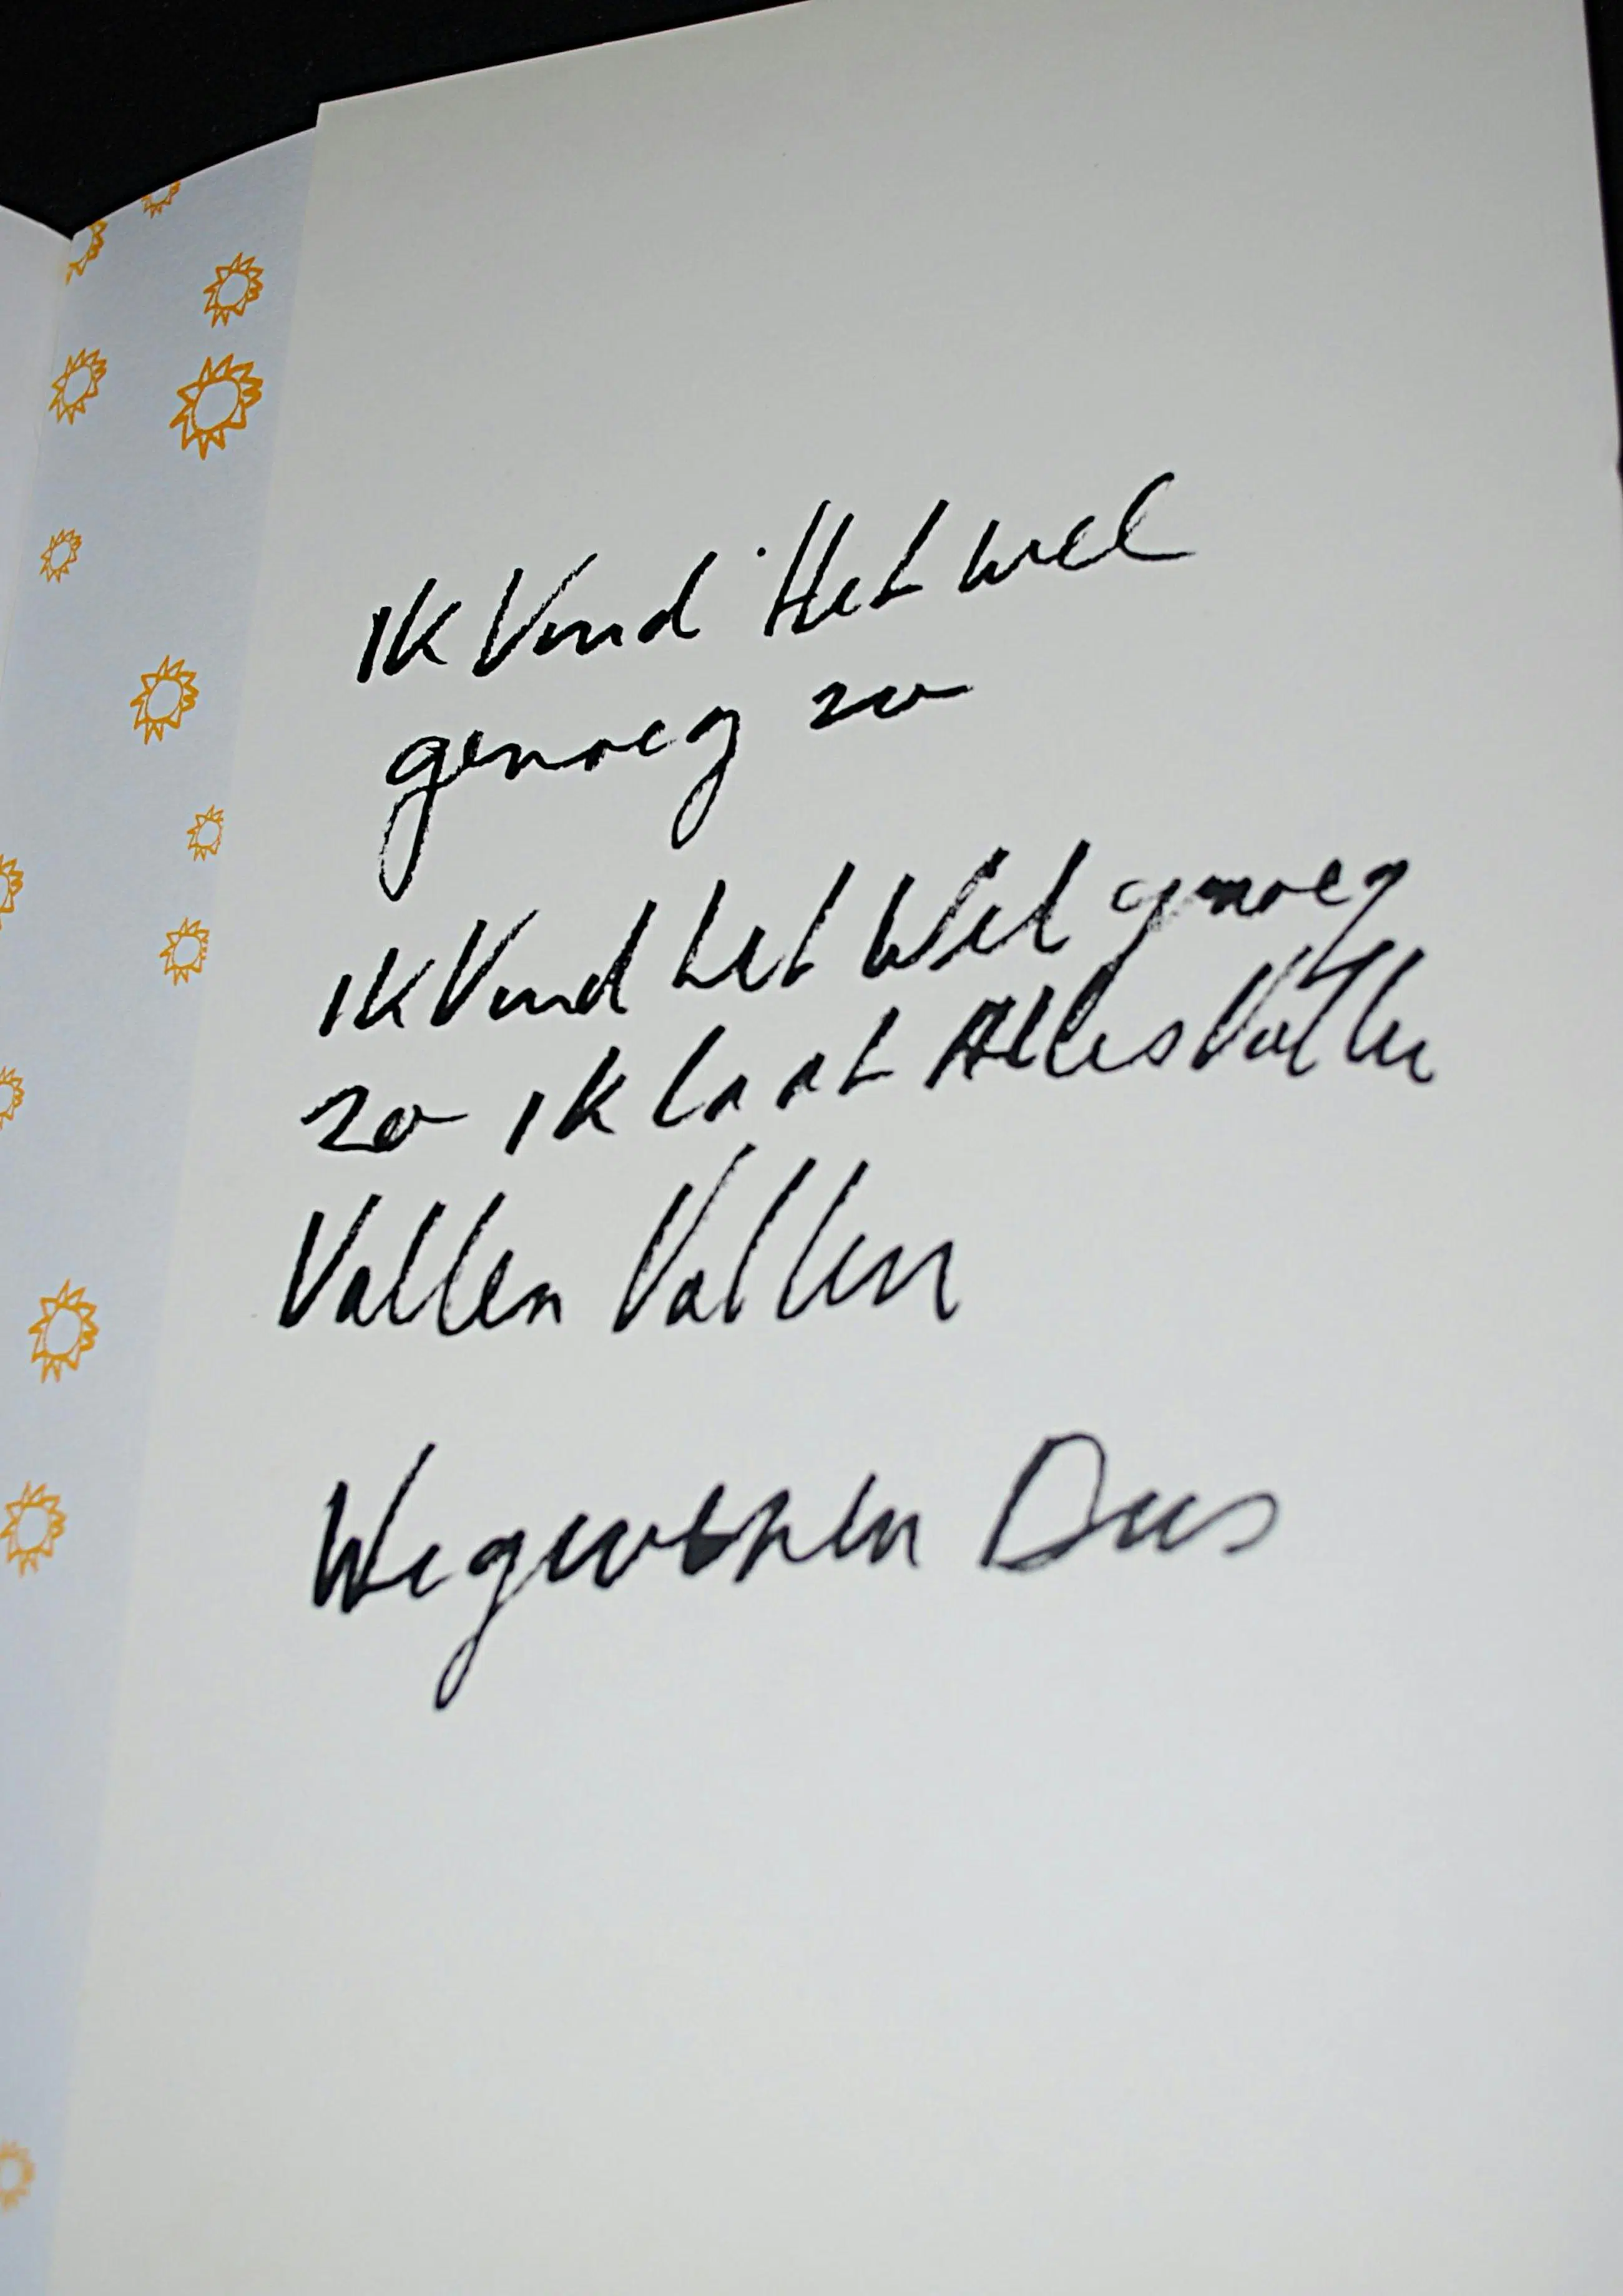 Ik Vind Het wel
genoeg zo
Ik Vind het Wel genoeg
zo Ik laat Alles Vallen
Vallen Vallen
Wegwezen Dus